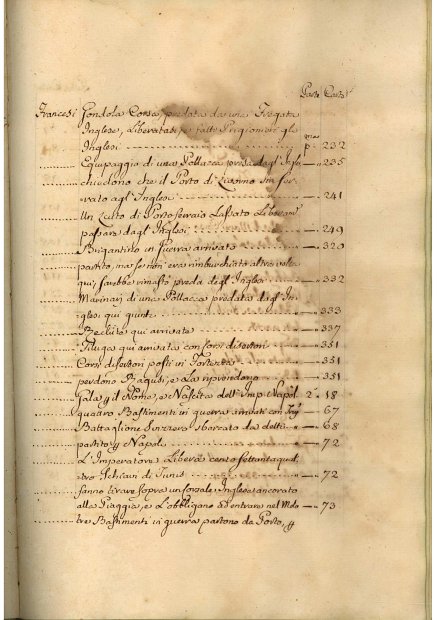 Parte Carta
Francesi Gondola Corsa predata da una Fregata
Inglese, Liberatasi, e fatti Prigionieri gl'
Inglesi p.ma 232
Equipaggio di una Pollacca presa dagl' Ingl. 235
chiudono che il Porto di
vato agl' Inglesi 241
Un Leuto di Portoferraio Lassato Liberam.
passare dagl' Inglesi 249
Brigantino in guerra arrivato 320
partito, ma se non era rimburchiato altro volta
qui, sarebbe rimasto preda degl' Inglesi 332
Marinari di una Pollacca predata dagl' In=
glesi qui giunti 333
Reclute qui arrivate 337
Filuga qui arrivata con Corsi disertori 351
Corsi disertori posti in Fortezza 351
perdono Ragusi, e La riprendono 351
Gala p il Nome, e Nascita dell' Imp. Napol. 2a 18
quattro Bastimenti in guerra andati con 67
Battaglione Svizzero Sbarcato da detti 68
partito p Napoli 72
L'Imperatore Libera cento settantaquat=
tro Schiavi di Tunis 72
fanno tirare sopra un Corsale Inglese ancorato
alla Piaggia, e L'obbligano ad entrare nel Molo 73
tre Bastimenti in guerra partono da Porto, p